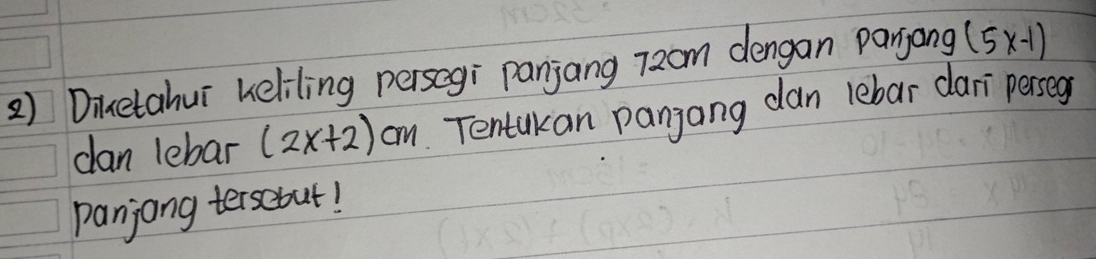 2) Diketahui keliling persegi panjang 72cm dengan panjang (5x-1)
dan lebar (2x+2) cm. Tentukan panjang dan lebar dari persegi
panjang tersebut!